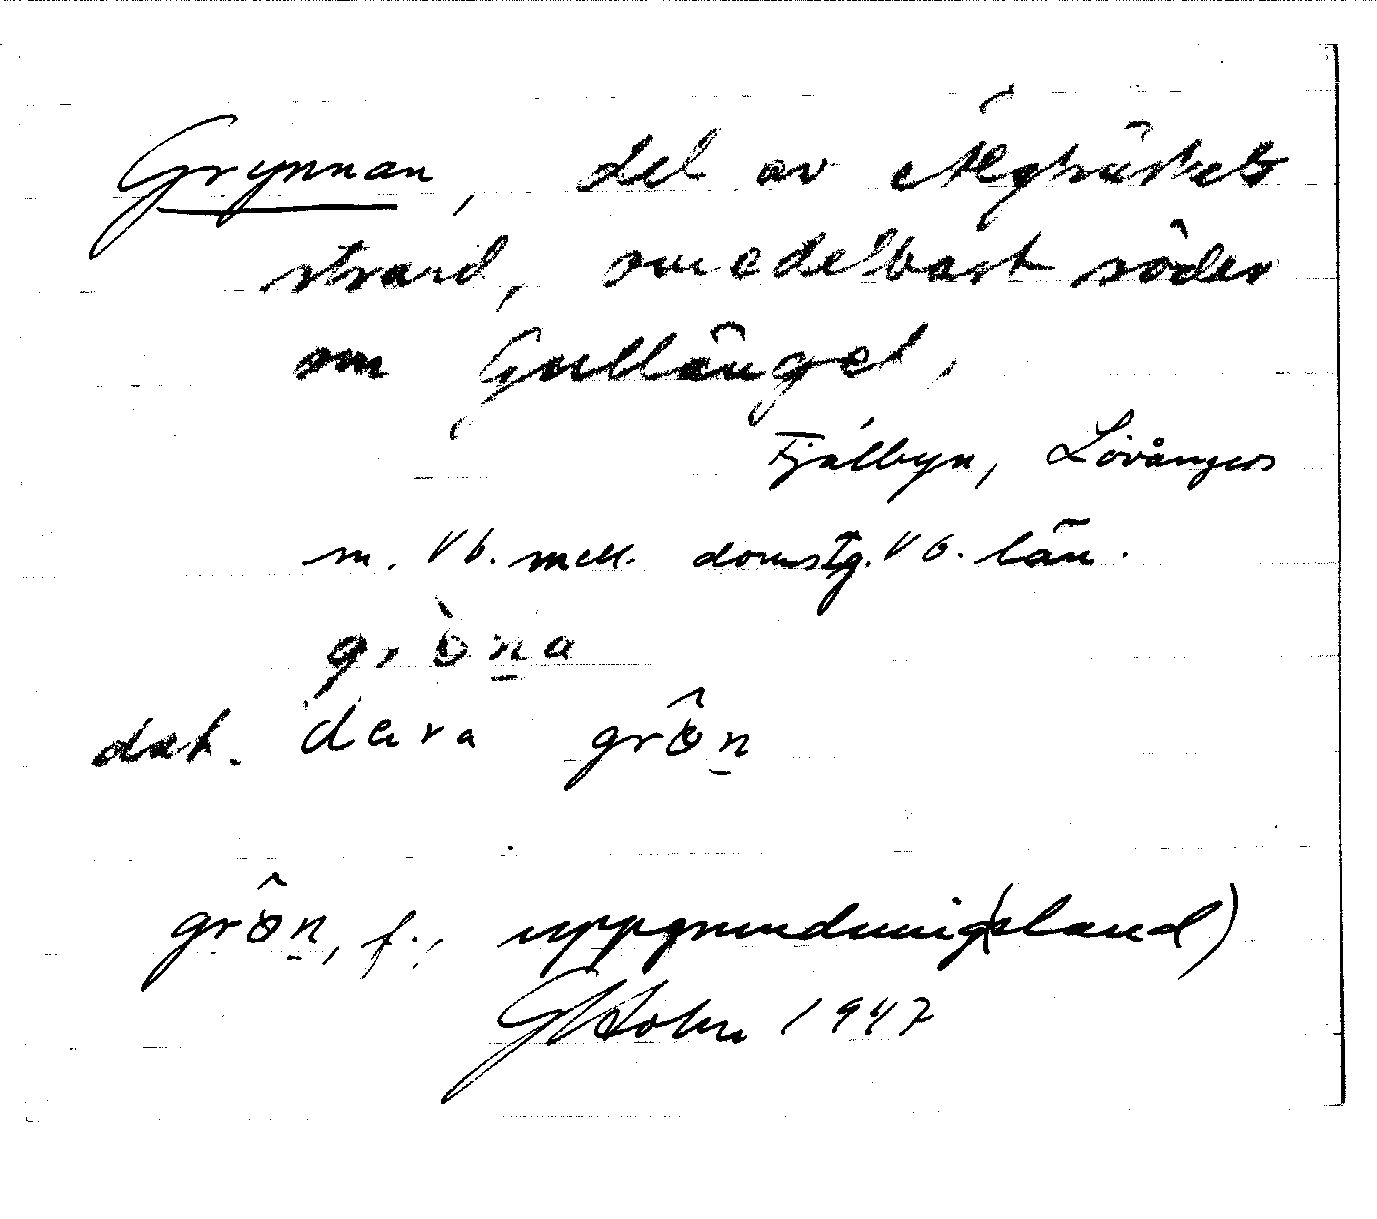 Grynnan, del av Älgträskets
strand, omedelbart söder
om Gullänget,
Fjälbyn, Lövångers
m. Vb. mell. domstg. Vb. län.
grò̤n̲a
dat. dera grôn̲
grôn̲, f., uppgrundning(sland)
G Holm 1947